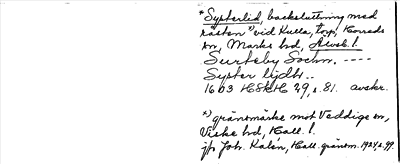 *Systerlid, backsluttning med
"åsten" vid Kulla, torp, Horreds
sn, Marks hd, Älvsb. l.
Surteby Sochn. ----
Syster lijdh ..
1603 HSH 29, s. 81. avskr.
*) gränsmärke mot Veddige sn,
Viske hd, Hall. l.
jfr Joh. Kalén, Hall. gränsm. 1924 s. 99.